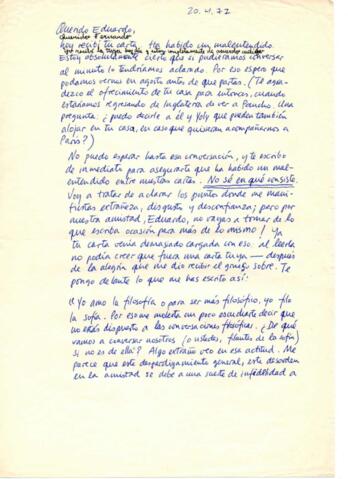 20.VI.77
Querido Eduardo,
Querido Fernando
hoy recibí tu carta. Ha habido un malentendido.
Yo recibí la tuya hoy y estoy de acuerdo
Estoy absolutamente cierto que si pudiéramos conversar
al minuto lo tendríamos aclarado. Por eso espero que
podamos vernos en agosto antes de que partas. (Te agra-
dezco el ofrecimiento de tu casa para entonces, cuando
estaríamos regresando de Inglaterra de ver a Pancho. Una
pregunta: ¿puedo decirle a él y Yoly que pueden también
alojar en tu casa, en caso que quisieran acompañarnos a
París?)
No puedo esperar hasta esa conversación, y te escribo
de inmediato para asegurarte que ha habido un mal-
entendido entre nuestras cartas. No sé en qué consiste.
Voy a tratar de aclarar los puntos donde me mani-
fiestas extrañeza, disgusto y desconfianza; pero por
nuestra amistad, Eduardo, no vayas a tomar de lo
que escriba ocasión para más de lo mismo! Ya
tu carta venía demasiado cargada con eso: al leerla
no podía creer que fuera una carta tuya — después
de la alegría que me dio recibir el grueso sobre. Te
pongo delante lo que me has escrito así:
"Yo amo la filosofía o para ser más filosófico, yo filo
la sofía. Por eso me molesta un poco escucharte decir que
no estás dispuesto a las conversaciones filosóficas. ¿De qué
vamos a conversar nosotros (o ustedes, filantes de la sofía)
si no es de ella? Algo extraño veo en esa actitud. Me
parece que este desperdigamiento general, este desorden
en la amistad se debe a una suerte de infidelidad a